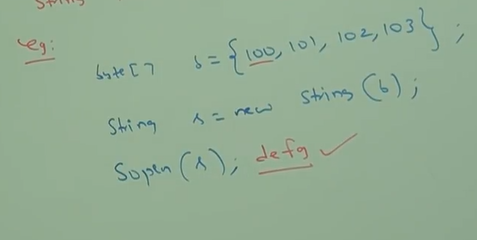 String
eg:
byte[] b = {100, 101, 102, 103};
String s = new String(b);
Sopln(s); defg ✓